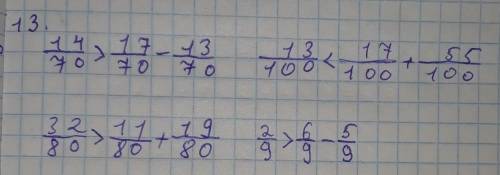 13.
14/70 > 17/70 - 13/70    13/100 < 17/100 + 55/100
32/80 > 11/80 + 19/80    2/9 > 6/9 - 5/9